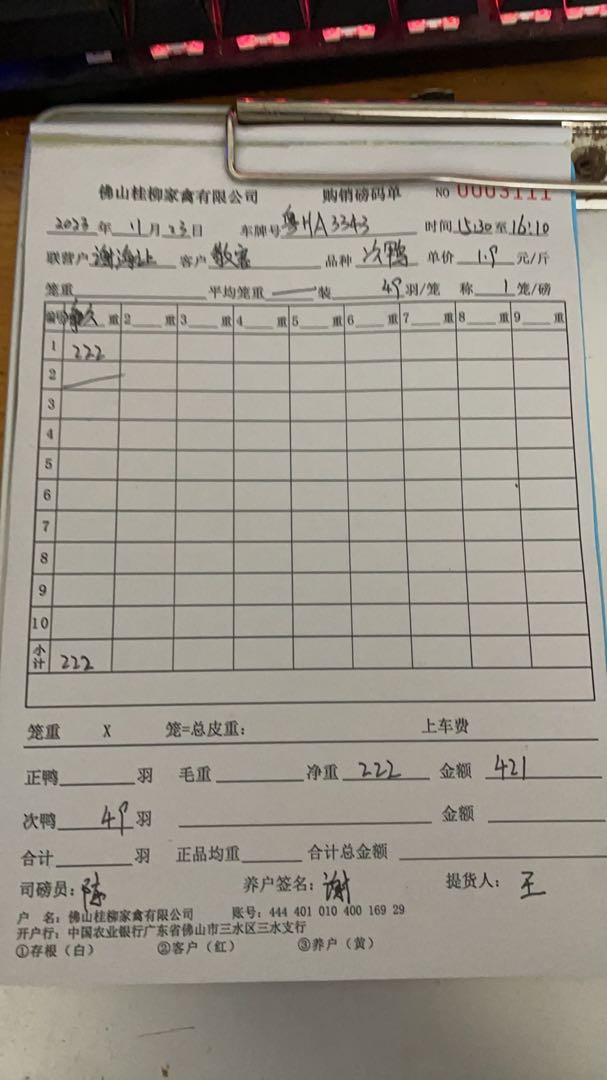 佛山桂柳家禽有限公司 购销磅码单 NO 0003111
2023年11月23日 车牌号粤HA3343 时间15:30至16:10
联营户谢海 客户 品种次鸭 单价1.9元/斤
笼重 平均笼重 — 装49羽/笼 称1笼/磅
编号 重 2 重 3 重 4 重 5 重 6 重 7 重 8 重 9 重
1 222
2
3
4
5
6
7
8
9
10
小计 222
笼重 X 笼=总皮重: 上车费
正鸭 羽 毛重 净重 222 金额 421
次鸭 49羽 金额
合计 羽 正品均重 合计总金额
司磅员:陈 养户签名:谢 提货人:王
户 名:佛山桂柳家禽有限公司 账号:444 401 010 400 169 29
开户行:中国农业银行广东省佛山市三水区三水支行
①存根(白) ②客户(红) ③养户(黄)